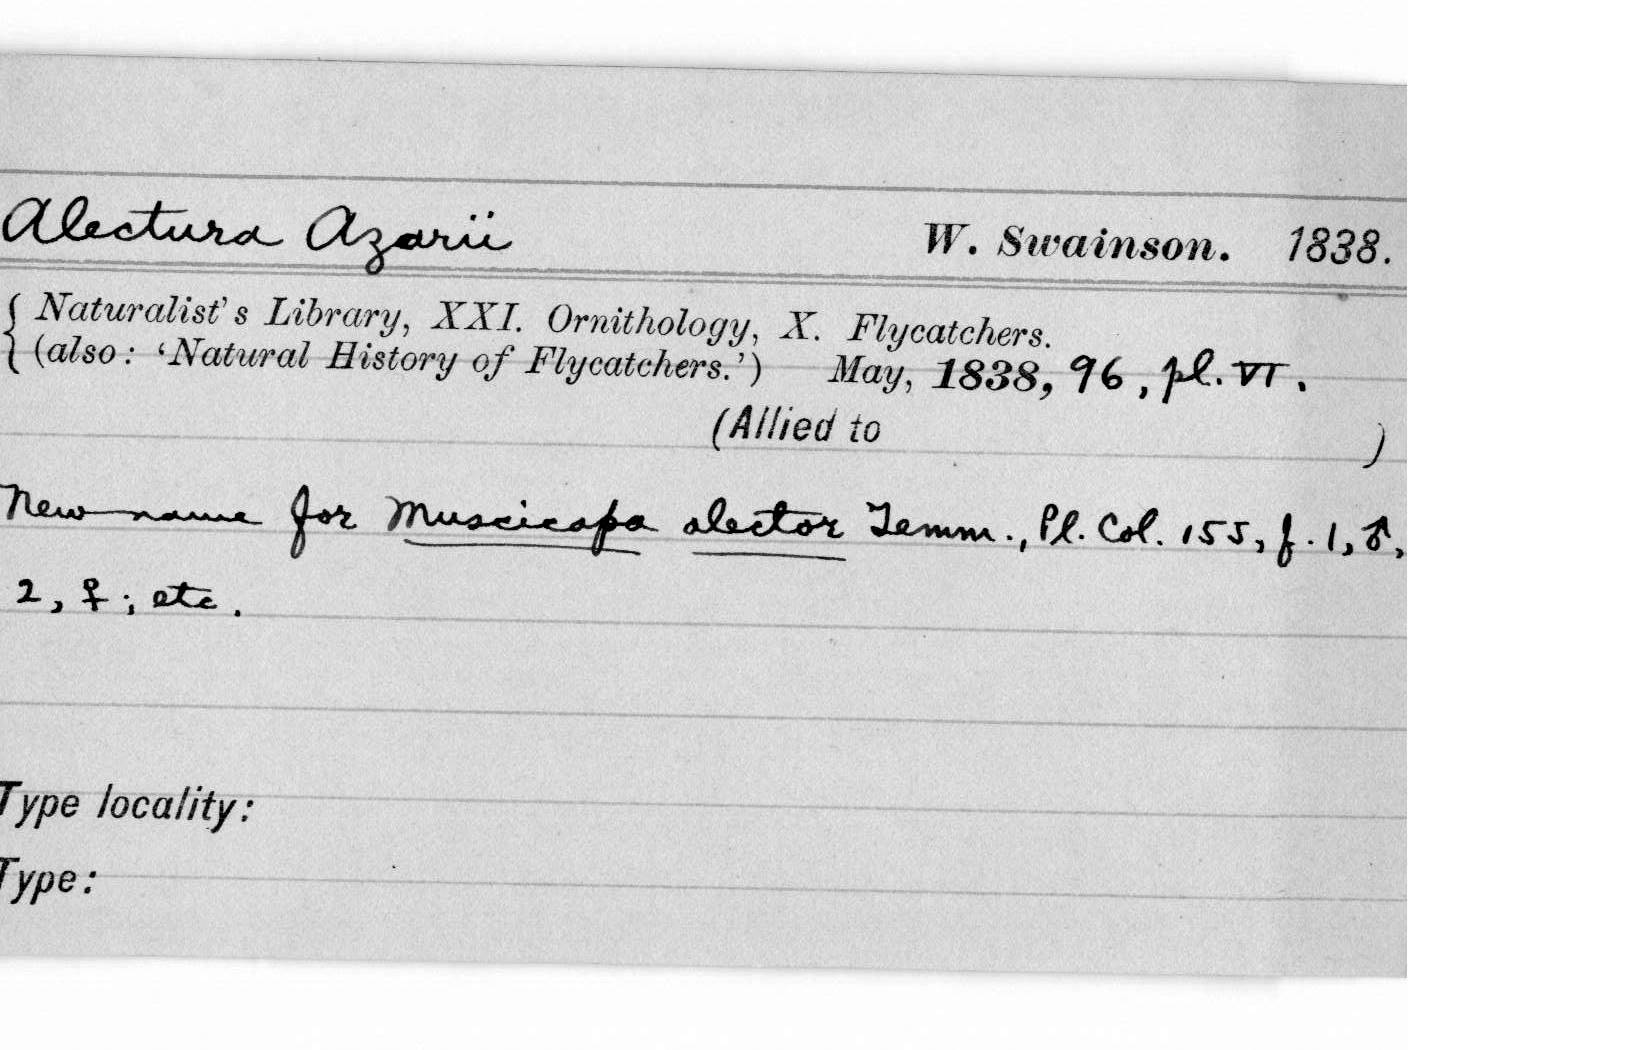 Alectura Azarii W. Swainson. 1838.
{ Naturalist's Library, XXI. Ornithology, X. Flycatchers.
(also: ‘Natural History of Flycatchers.’) May, 1838, 96, pl. VI.
(Allied to )
New name for Muscicapa alector Temm., Pl. Col. 155, f. 1, ♂,
2, ♀; etc.
Type locality:
Type: